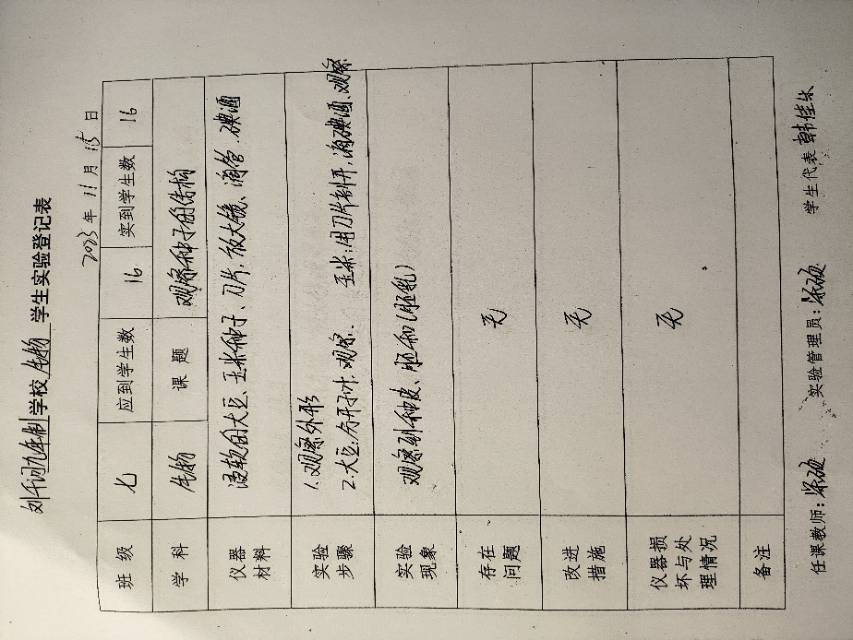 刘千河九年制学校生物学生实验登记表
2023年11月15日
班级 七 应到学生数 16 实到学生数 16
学科 生物 课题 观察种子的结构
仪器材料 浸软的大豆、玉米种子、刀片、放大镜、滴管、碘酒
实验步骤 1.观察外形
2.大豆:分开子叶,观察. 玉米:用刀片剖开,滴碘酒,观察
实验现象 观察到种皮、胚和(胚乳)
存在问题 无
改进措施 无
仪器损坏与处理情况 无
备注
任课教师: 实验管理员: 学生代表 韩佳